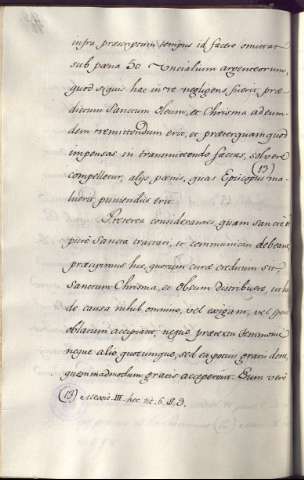 infra præscriptum tempus id facere omittat
sub pæna 50 Uncialium argenteorum,
quod siquis hac in re negligens fuerit, præ
dictum Sanctum Oleum, et Chrisma ad eum
dem remittendum erit, et præterquam quod
impensas in transmittendo factas, solvere
compelletur, alijs pænis, quas Episcopus ma
luerit puniendus erit. (13)
Præterea considerantes, quam sancte
pure Sancta tractari, et communicari debeant
præcipimus his, quorum curæ creditum sit
Sanctum Chrisma, et Oleum distribuere, ut hac
de causa nihil omnino, vel exigant, vel sponte
oblatum accipiant, neque prætextu elemosinæ
neque alio quocumque, sed ea potius gratis dent,
quemadmodum gratis acceperunt. Cum vero
(13) Mexic. III. hoc tit. 6. § 3.